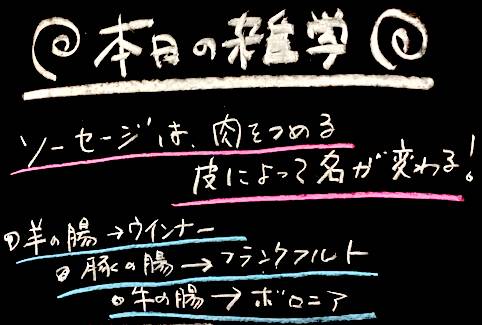 本日の雑学
ソーセージは、肉をつめる
皮によって名が変わる!
①羊の腸→ウインナー
②豚の腸→フランクフルト
③牛の腸→ボロニア